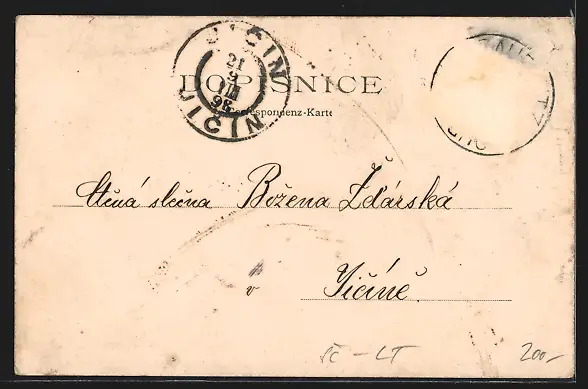 JIČÍN
21
9
III
98
JIČÍN
DOPISNICE
Correspondenz-Karte
Ctěná slečna Božena Žďárská
v Jičíně.
ŠČ – LT 200,-